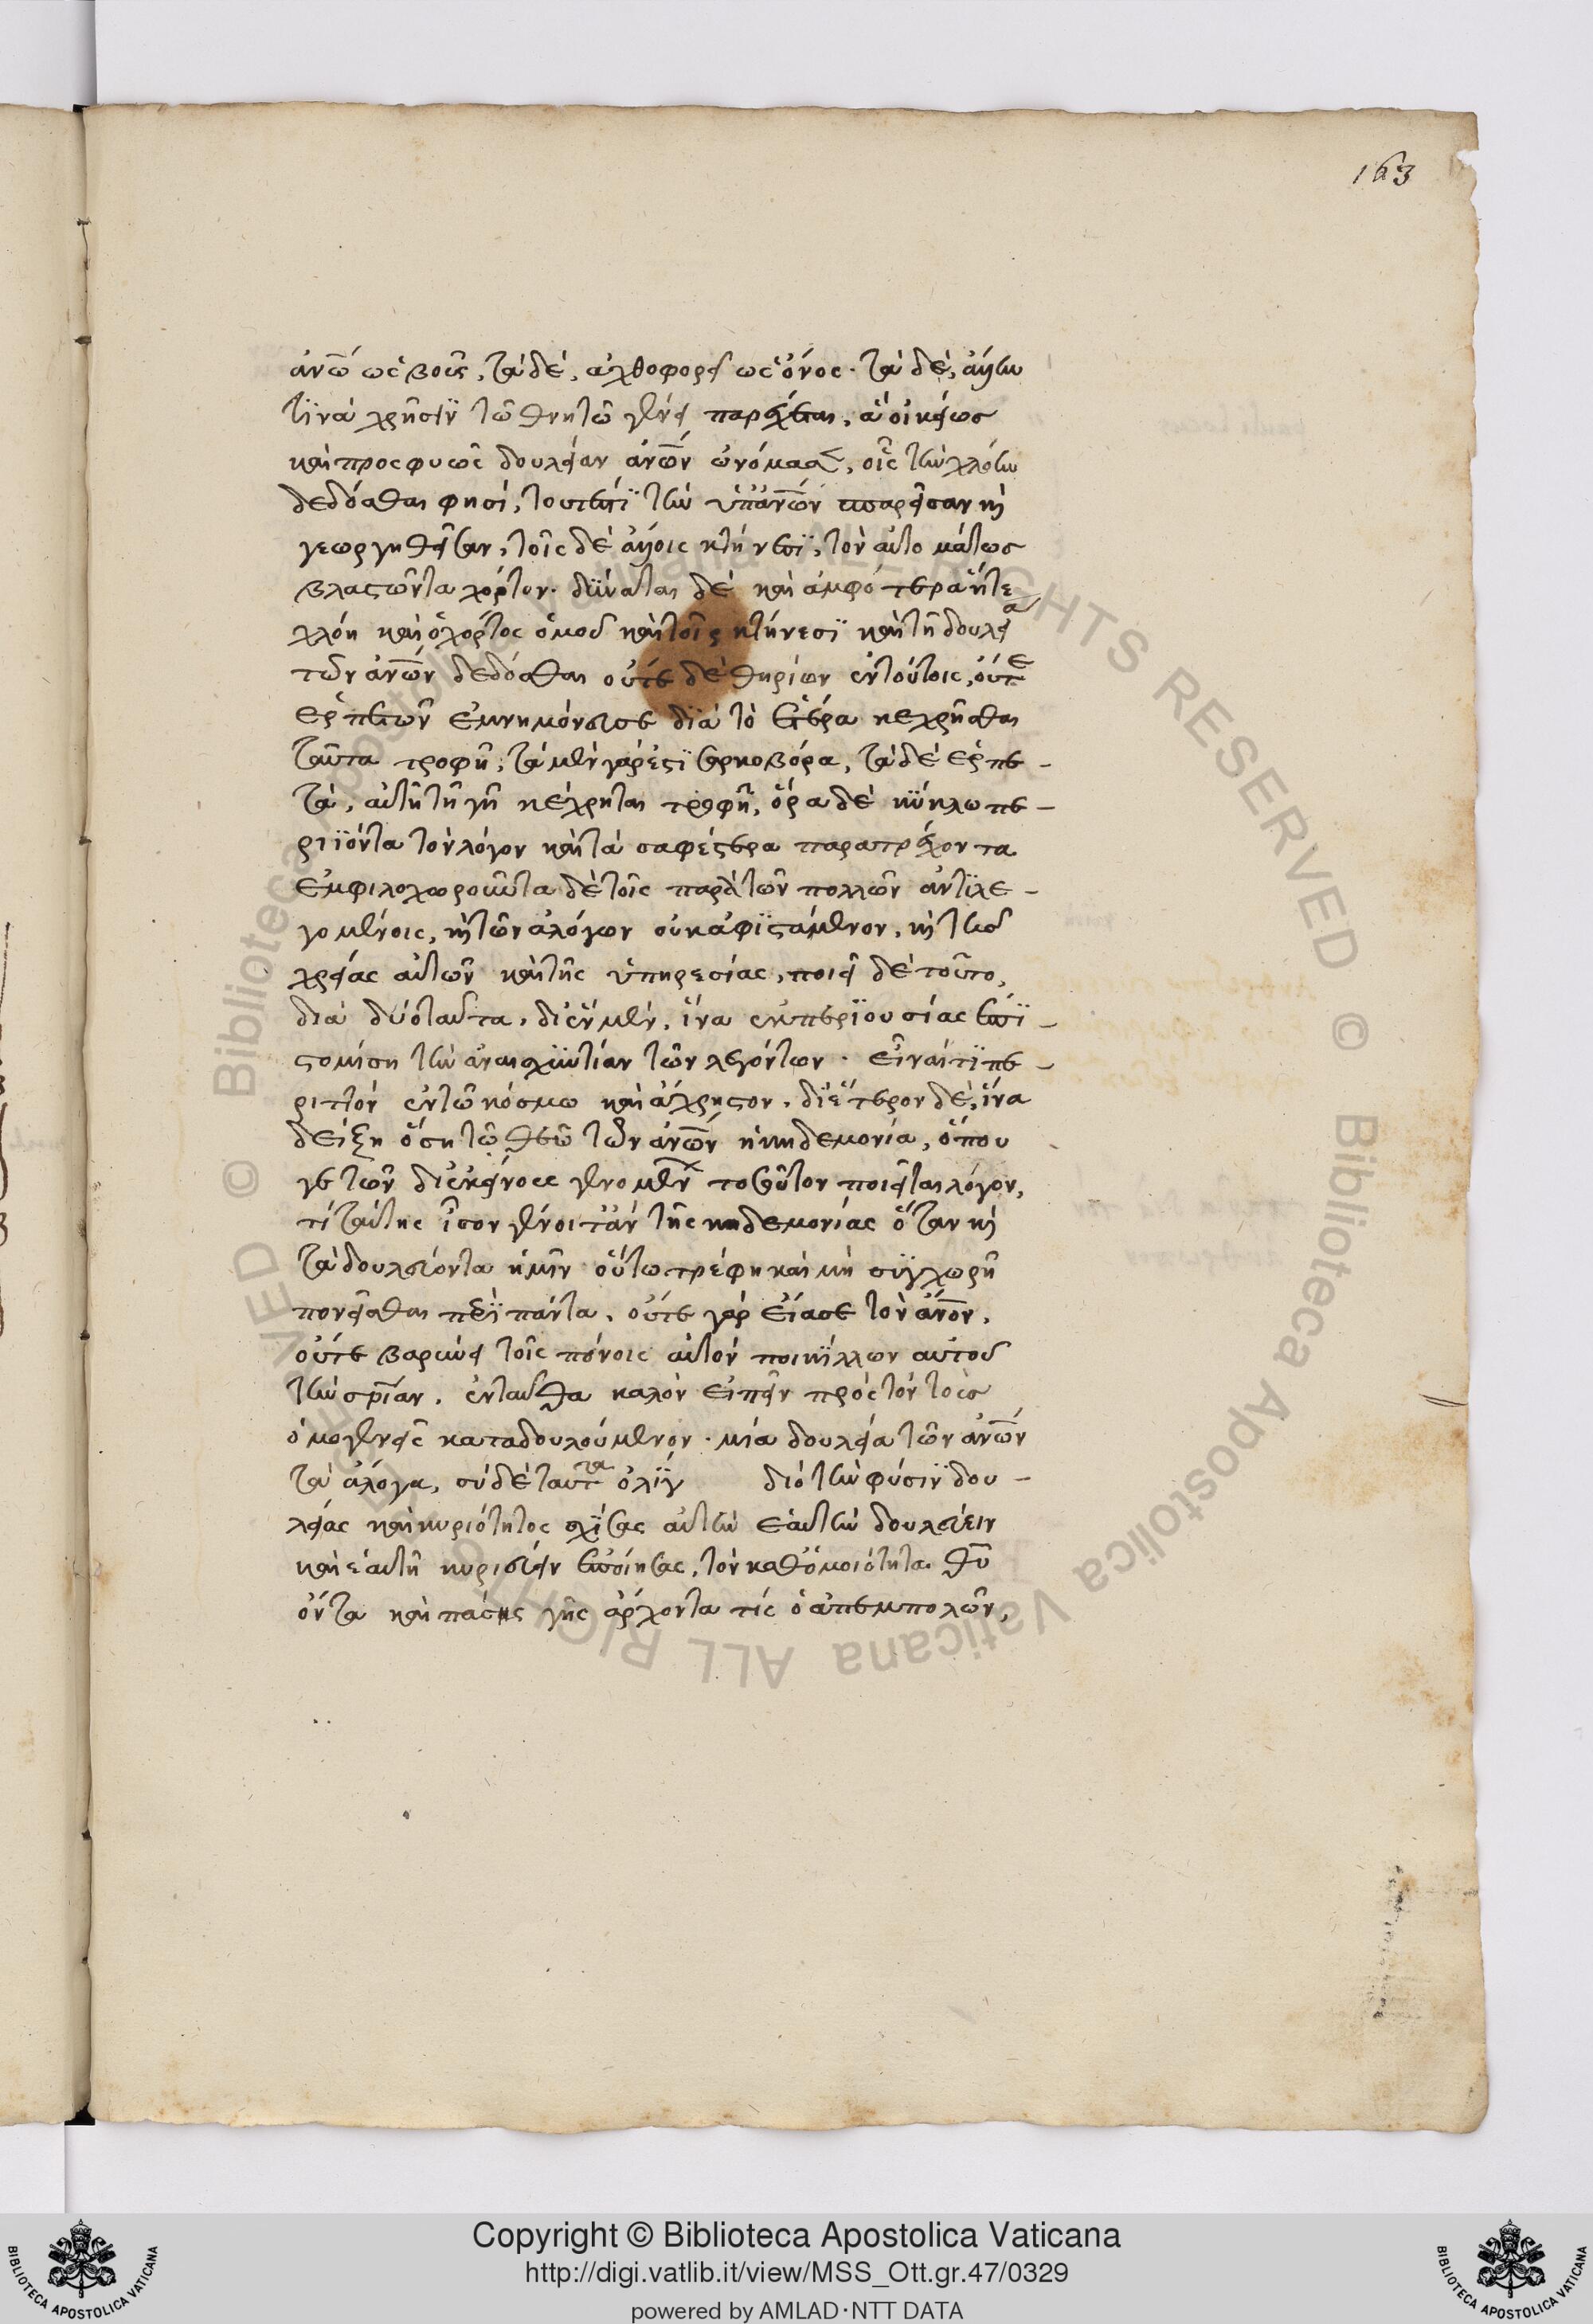 163
ἀνῶ ὡς βοῦς, τὰ δὲ, ἀχθοφορεῖ ὡς ὄνος· τὰ δὲ, ἄλλην
τινὰ χρῆσιν τῶ θνητῶ γένει παρέχεται, ἃ οἰκείως
καὶ προσφυῶς δουλείαν ἀνῶν ὠνόμασε, οἷς τὴν χλόην
δεδόσθαι φησὶ, τουτέστι τὴν ὑπ' ἀνῶν σπαρεῖσαν καὶ
γεωργηθεῖσαν, τοῖς δὲ ἄλλοις κτήνεσι, τὸν αὐτομάτως
βλαστῶντα χόρτον· δύναται δὲ καὶ ἀμφότερα ἥτε
χλόη καὶ ὁ χόρτος ὁμοῦ καὶ τοῖς κτήνεσι καὶ τῆ δουλεία
τῶν ἀνῶν δεδόσθαι οὔτε δὲ θηρίων ἐν τούτοις, οὔτε
ἑρπετῶν ἐμνημόνευσε διὰ τὸ ἑτέρα κεχρῆσθαι
ταῦτα τροφῆ, τὰ μὲν γάρ ἐστι σαρκοβόρα, τὰ δὲ ἑρπε-
τὰ, αὐτῆ τῆ γῆ κέχρηται τροφῆ, ὅρα δὲ κύκλω πε-
ριϊόντα τὸν λόγον καὶ τὰ σαφέστερα παρατρέχοντα
ἐμφιλοχωροῦντα δὲ τοῖς παρὰ τῶν πολλῶν ἀντιλε-
γομένοις, καὶ τῶν ἀλόγων οὐκ ἀφιστάμενον, καὶ τῆς
χρείας αὐτῶν καὶ τῆς ὑπηρεσίας, ποιεῖ δὲ τοῦτο,
διὰ δύο ταῦτα, δι' ἓν μὲν, ἵνα ἐκ περιουσίας ἐπι-
στομίση τὴν ἀναισχυντίαν τῶν λεγόντων· εἶναί τι πε-
ριττὸν ἐν τῶ κόσμω καὶ ἄχρηστον, δι' ἕτερον δὲ, ἵνα
δείξη ὅση τῶ θεῶ τῶν ἀνῶν ἡ κηδεμονία, ὅπου
γε τῶν δι' ἐκείνους γενομένων τοσοῦτον ποιεῖται λόγον,
τί ταύτης ἴσον γένοιτ' ἂν τῆς κηδεμονίας ὅταν καὶ
τὰ δουλεύοντα ἡμῖν οὕτω τρέφη καὶ μὴ συγχωρῆ
πονεῖσθαι περὶ πάντα, οὔτε γὰρ εἴασε τὸν ἄνον,
οὔτε βαρύνει τοῖς πόνοις αὐτὸν ποικίλλων αὐτοῦ
τὴν σρίαν, ἐνταῦθα καλὸν εἰπεῖν πρὸς τὸν τοὺς
ὁμογενεῖς καταδουλούμενον· μία δουλεία τῶν ἀνῶν
τὰ ἄλογα, σὺ δὲ ταῦτα ὀλίγ διὸ τὴν φύσιν δου-
λείας καὶ κυριότητος σχίσας αὐτὴν ἑαυτὴν δουλεύειν
καὶ ἑαυτῆ κυριεύειν ἐποίησας, τὸν καθ' ὁμοιότητα θυ
ὄντα καὶ πάσης γῆς ἄρχοντα τίς ὁ ἀπεμπολῶν,
Copyright © Biblioteca Apostolica Vaticana
http://digi.vatlib.it/view/MSS_Ott.gr.47/0329
powered by AMLAD·NTT DATA